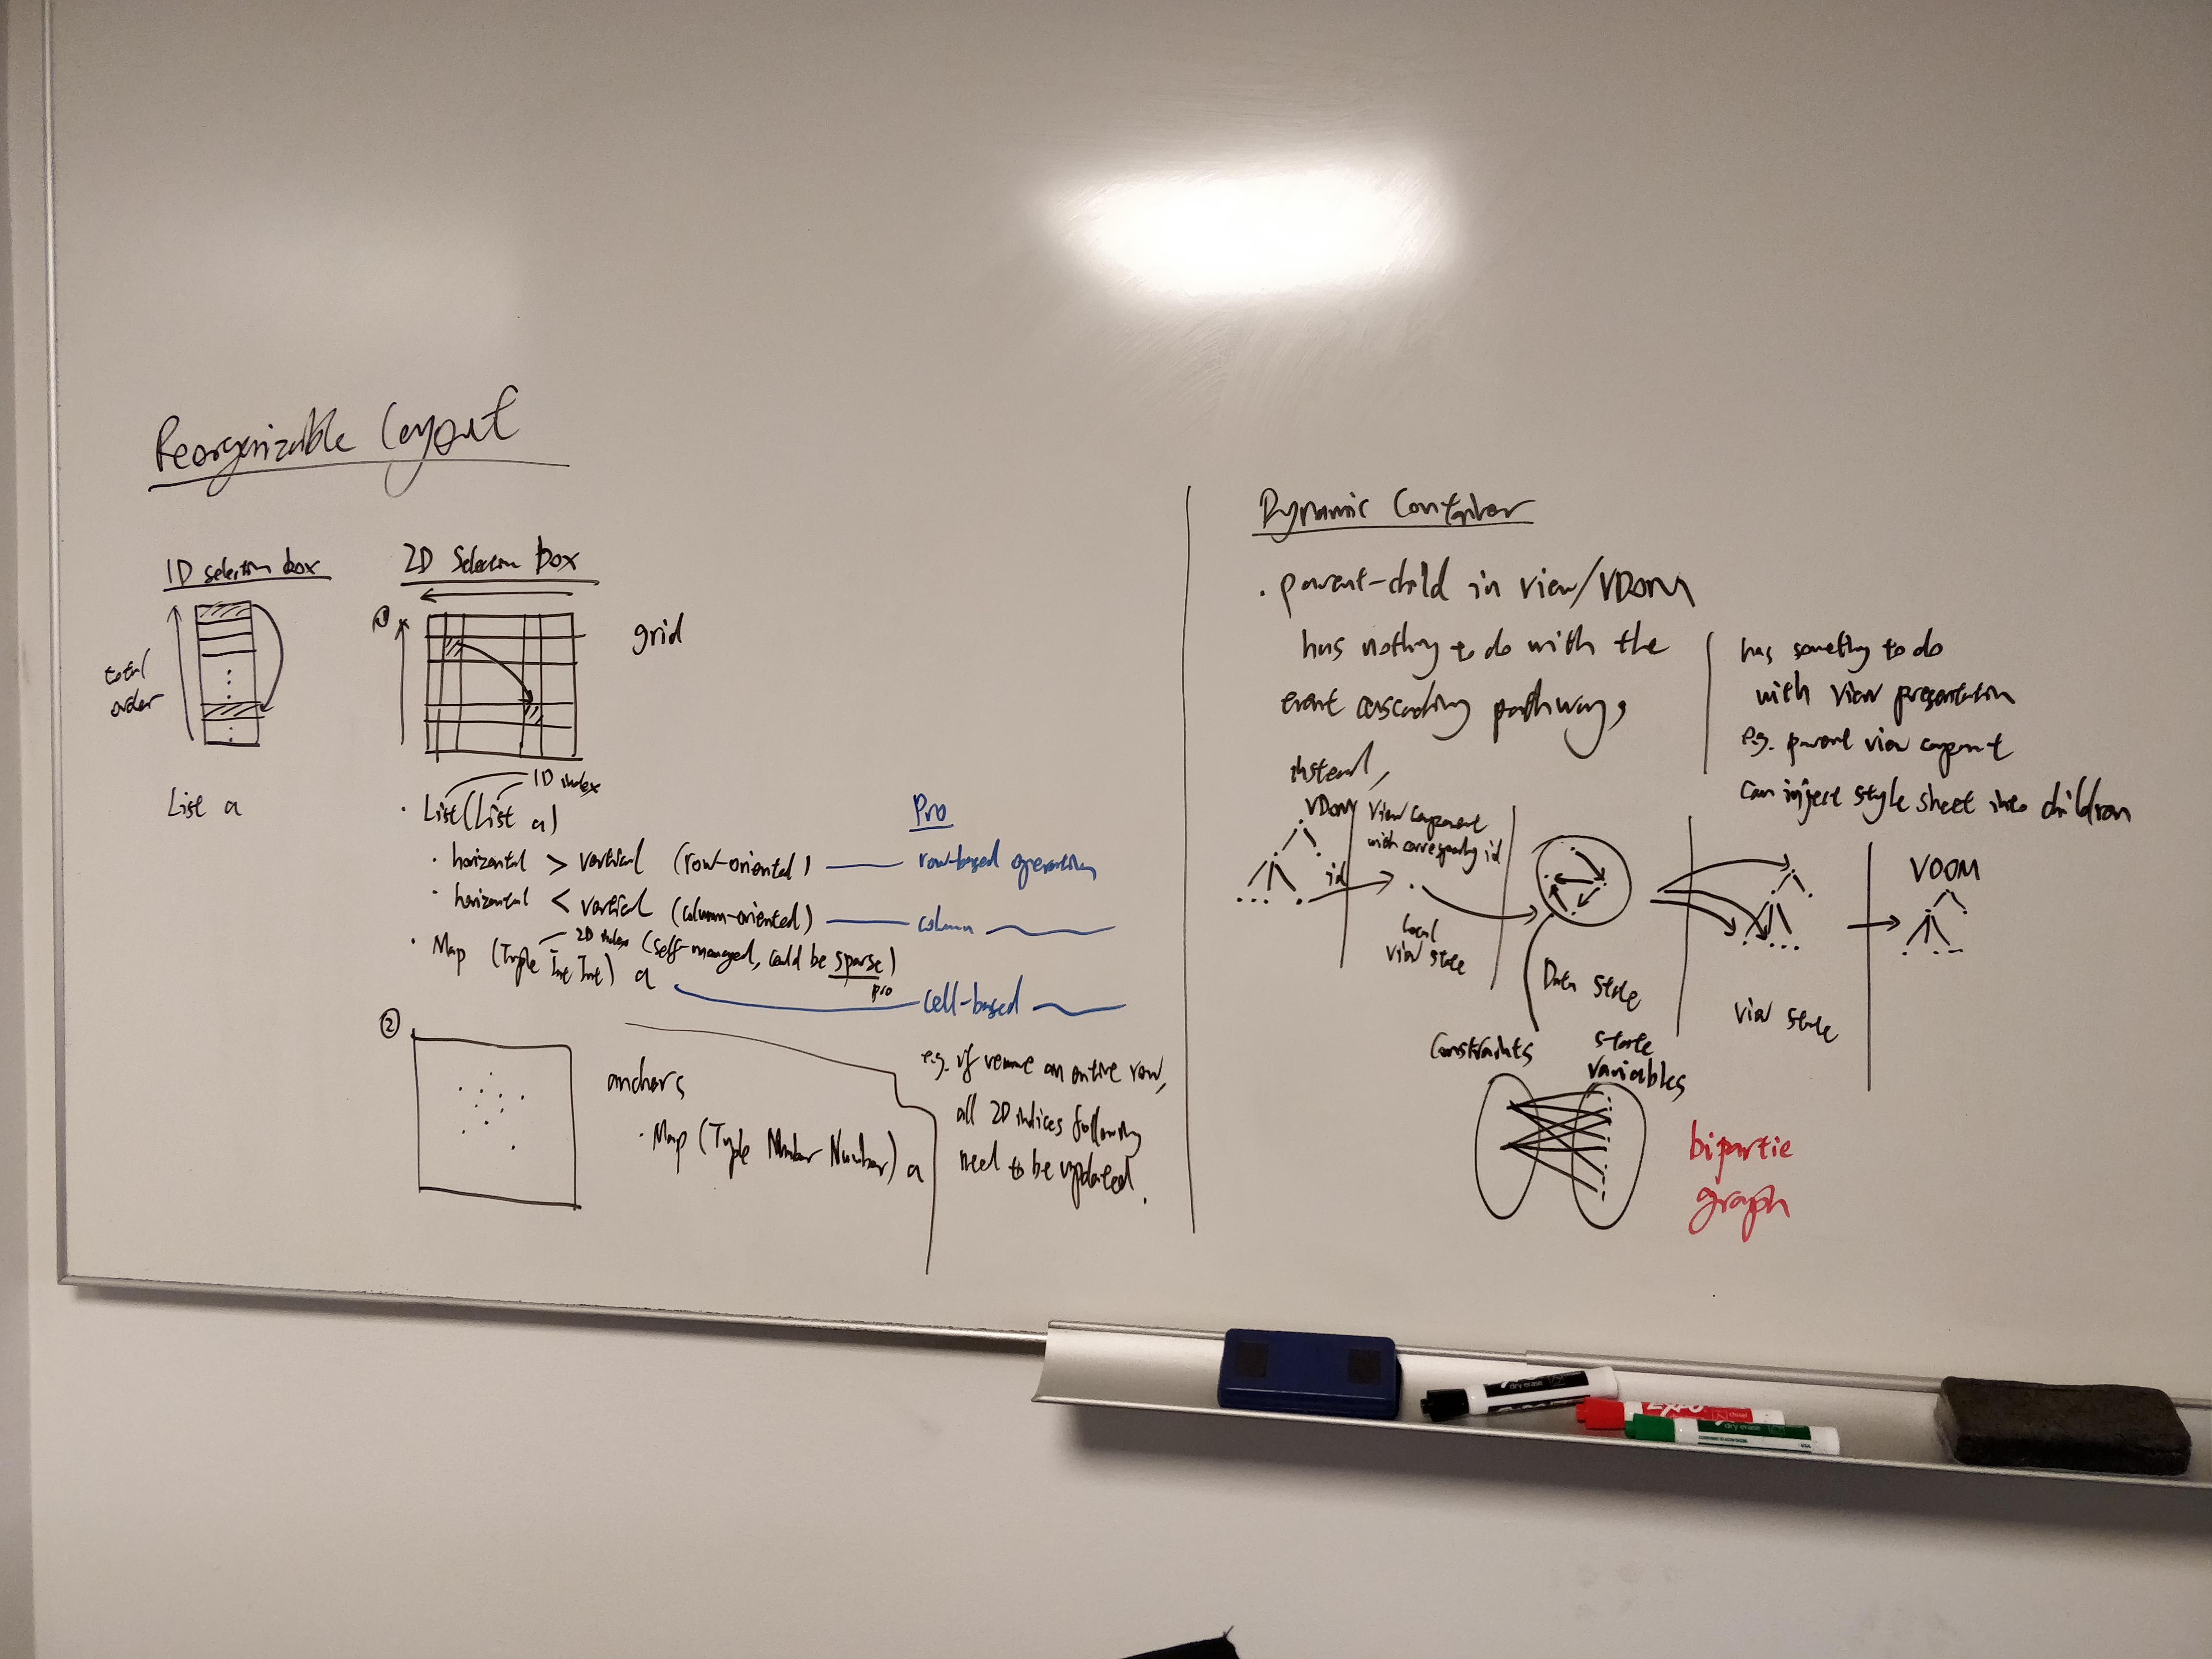 Reorganizable Layout
1D selection box
total
order
List a
2D Selection box
①
grid
1D index
· List (List a)
· horizontal > vertical (row-oriented)
· horizontal < vertical (column-oriented)
2D index
· Map (Tuple Int Int) a
(self-managed, could be sparse)
pro
Pro
row-based operation
column
cell-based
②
anchors
· Map (Tuple Number Number) a
e.g. if remove an entire row,
all 2D indices following
need to be updated.
Dynamic Container
· parent-child in view/VDOM
has nothing to do with the
event cascading pathway,
has something to do
with view presentation
e.g. parent view component
can inject style sheet into children
instead,
VDOM
id
View component
with corresponding id
local
view state
Data State
View State
VDOM
Constraints
state
variables
bipartie
graph
dry erase
EXPO
dry erase